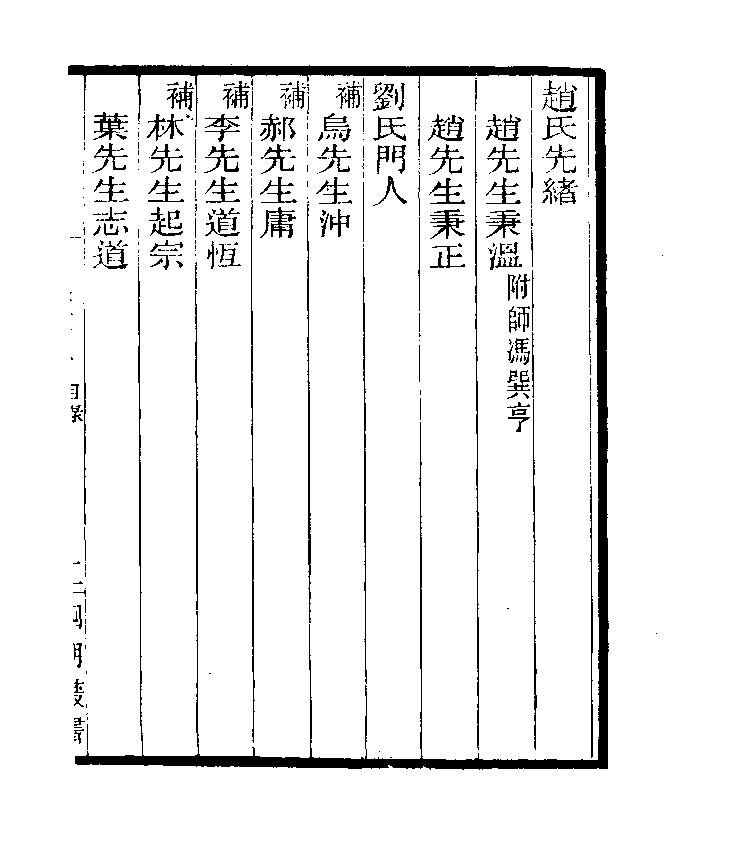 趙氏先緒
趙先生秉溫附師馮巽亨
趙先生秉正
劉氏門人
補烏先生沖
補郝先生庸
補李先生道恆
補林先生起宗
葉先生志道
目錄
四明叢書